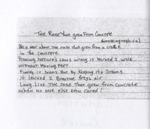 The Rose that grew From Concrete
Autobiographical
Did u hear about the rose that grew from a crack
in the concrete
Proving Nature's Laws wrong it learned 2 walk
without Having Feet
Funny it seems But By Keeping its Dreams
it learned 2 Breathe fresh air
Long Live the rose that grew from concrete
when no one else even cared!